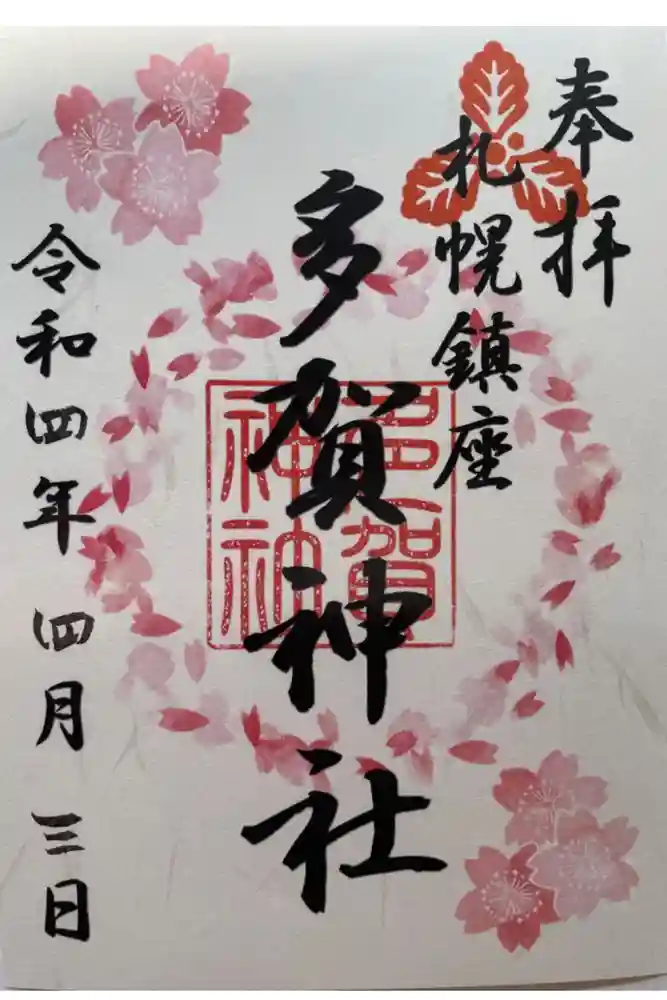 奉拝
札幌鎮座
多賀神社
令和四年 四月 三日
多賀
神社